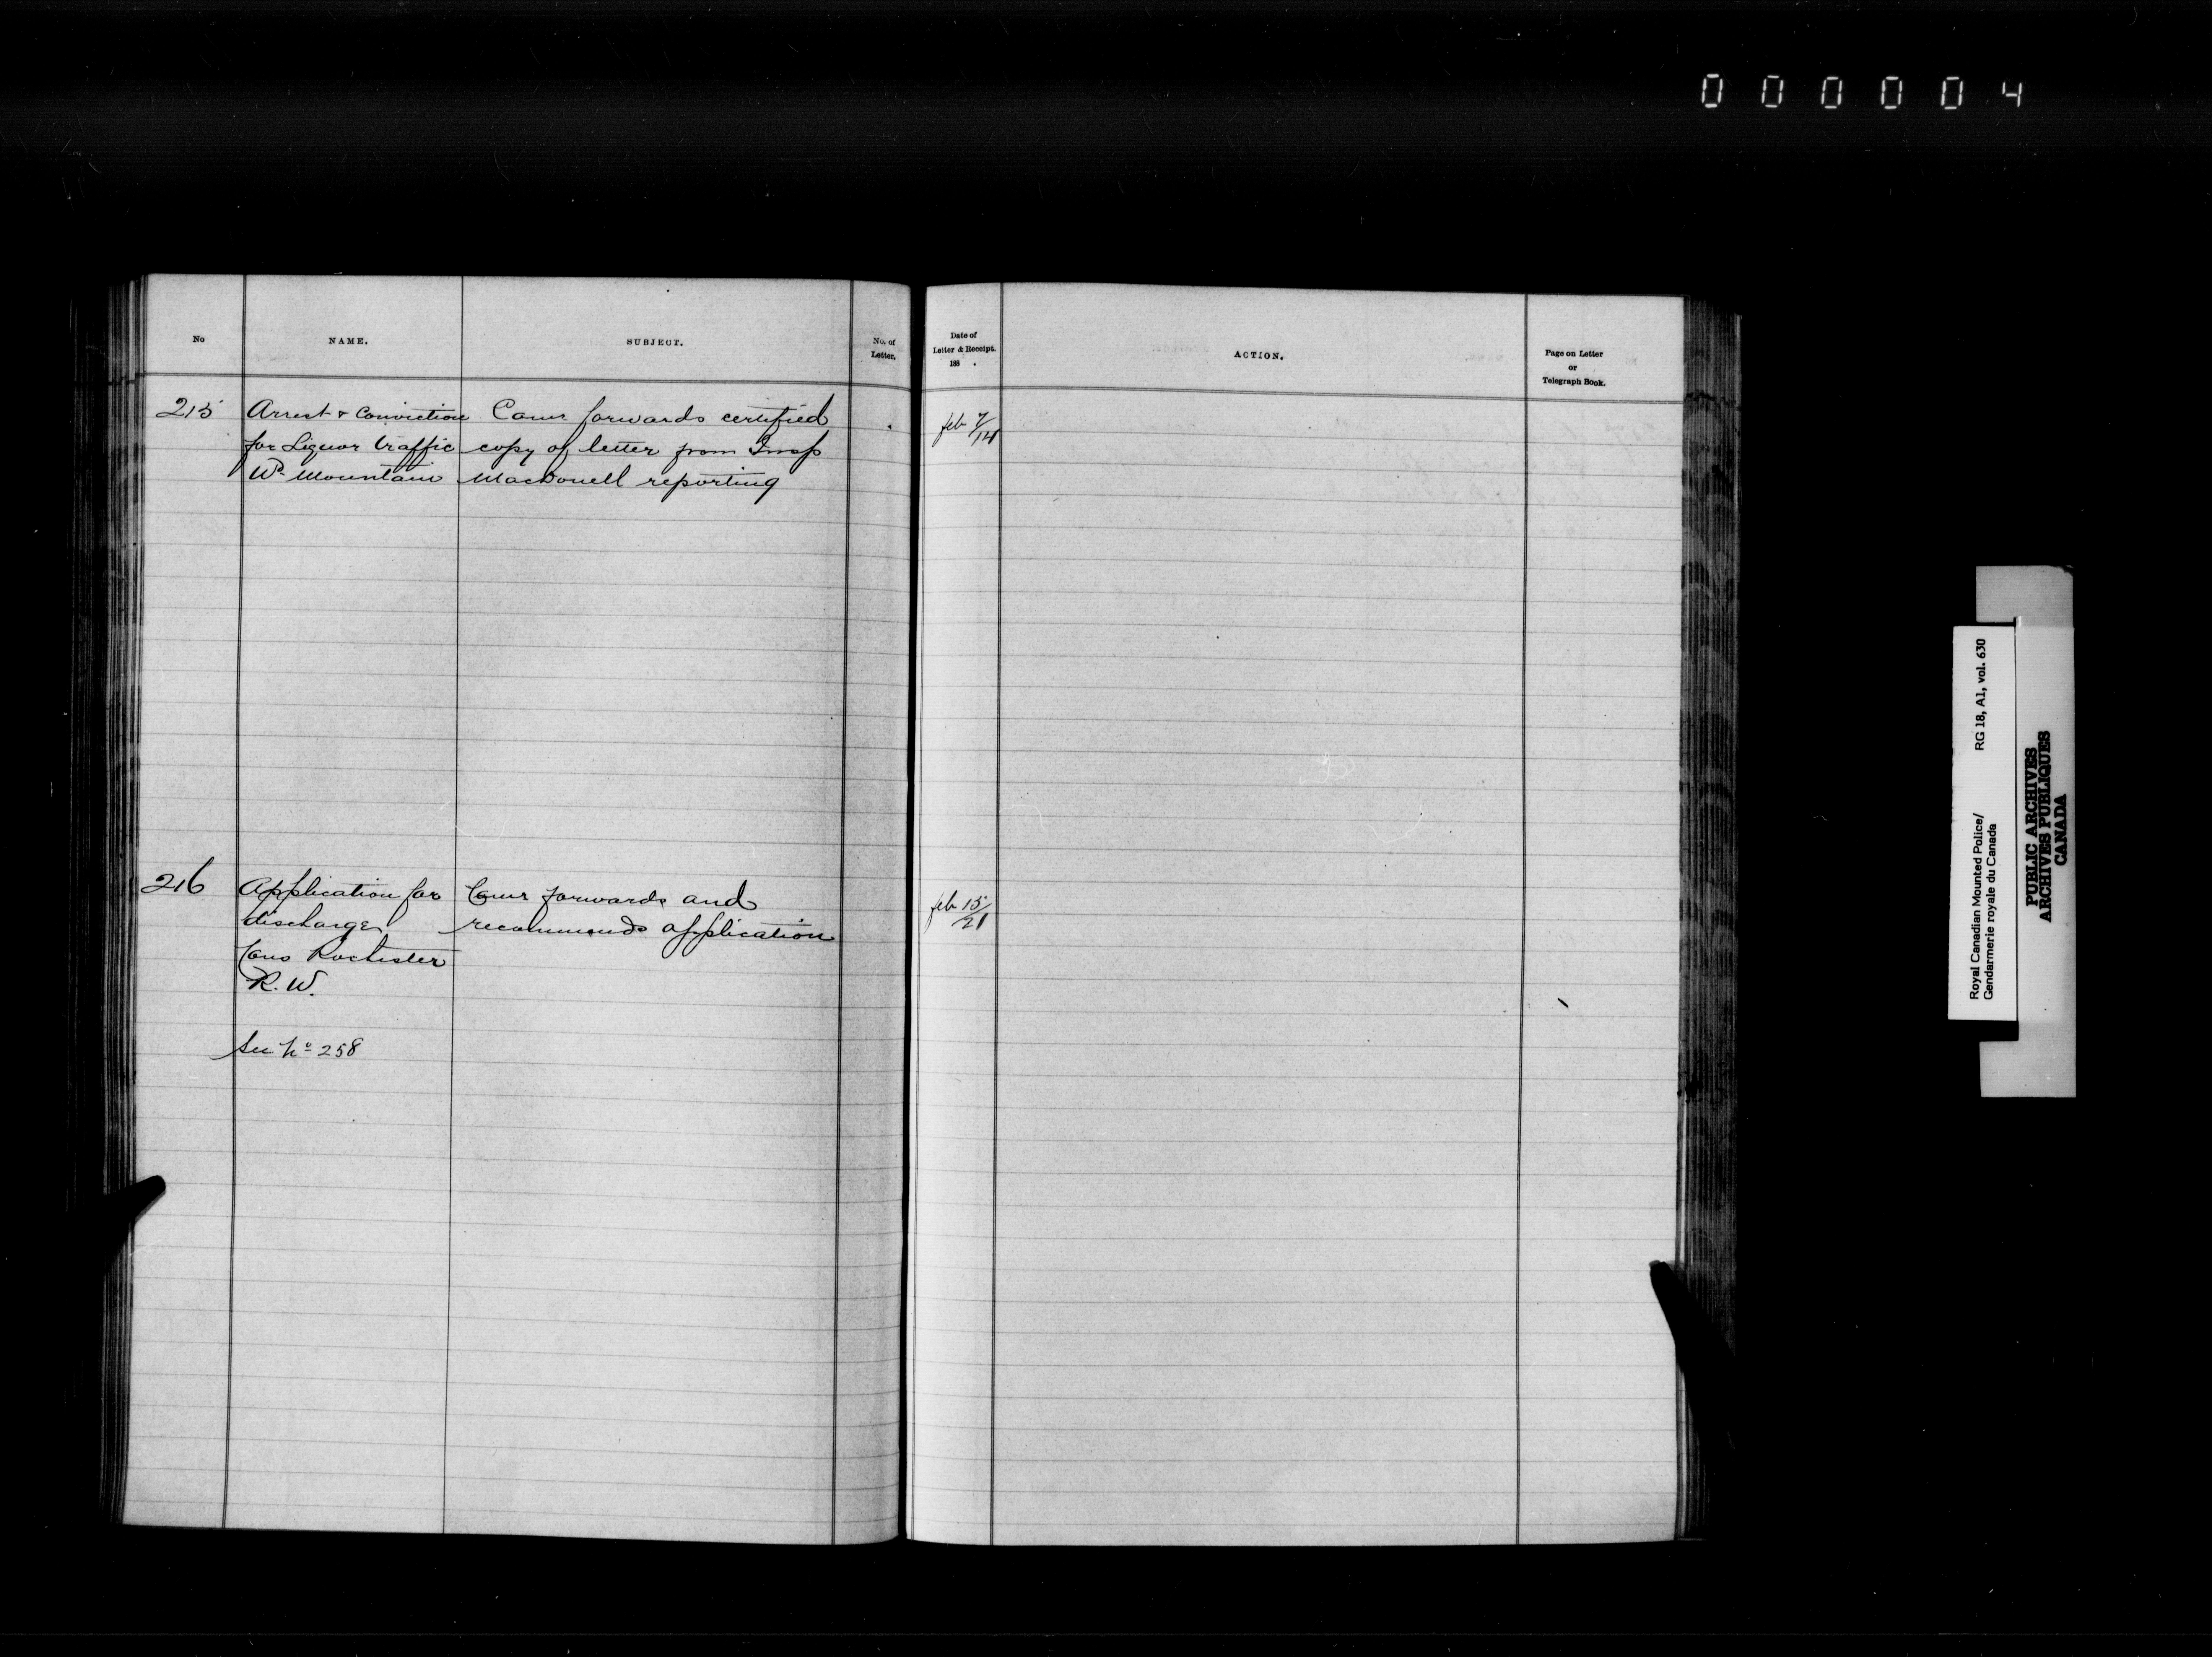 000004
No
NAME.
SUBJECT.
No. of
Letter.
Date of
Letter & Receipt.
188 .
ACTION.
Page on Letter
or
Telegraph Book.
215
Arrest & Conviction
for Liquor traffic
Wd Mountain
Comr forwards certified
copy of letter from Insp
Macdonell reporting
feb 7/14
216
Application for
discharge
Cons Rochester
R. W.
See No 258
Comr forwards and
recommends application
feb 15/21
Royal Canadian Mounted Police/
Gendarmerie royale du Canada
RG 18, A1, vol. 630
PUBLIC ARCHIVES
ARCHIVES PUBLIQUES
CANADA